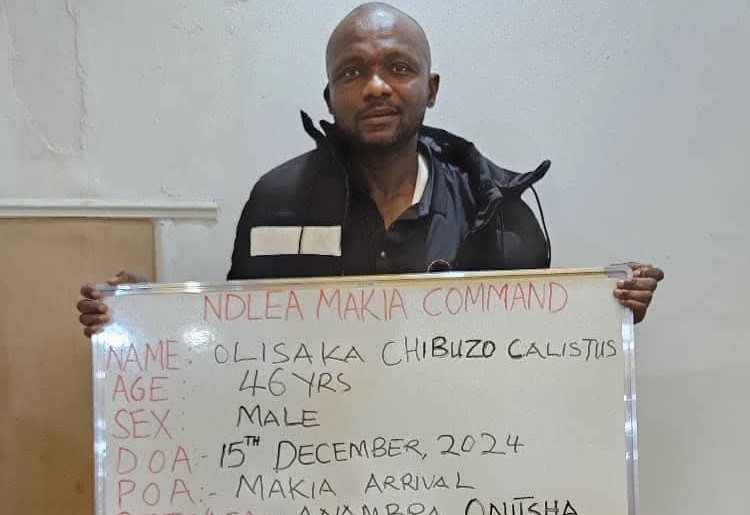 NDLEA MAKIA COMMAND
NAME: OLISAKA CHIBUZO CALISTUS
AGE : 46 YRS
SEX : MALE
DOA - 15TH DECEMBER, 2024
POA :- MAKIA ARRIVAL
ANAMBRA ONITSHA